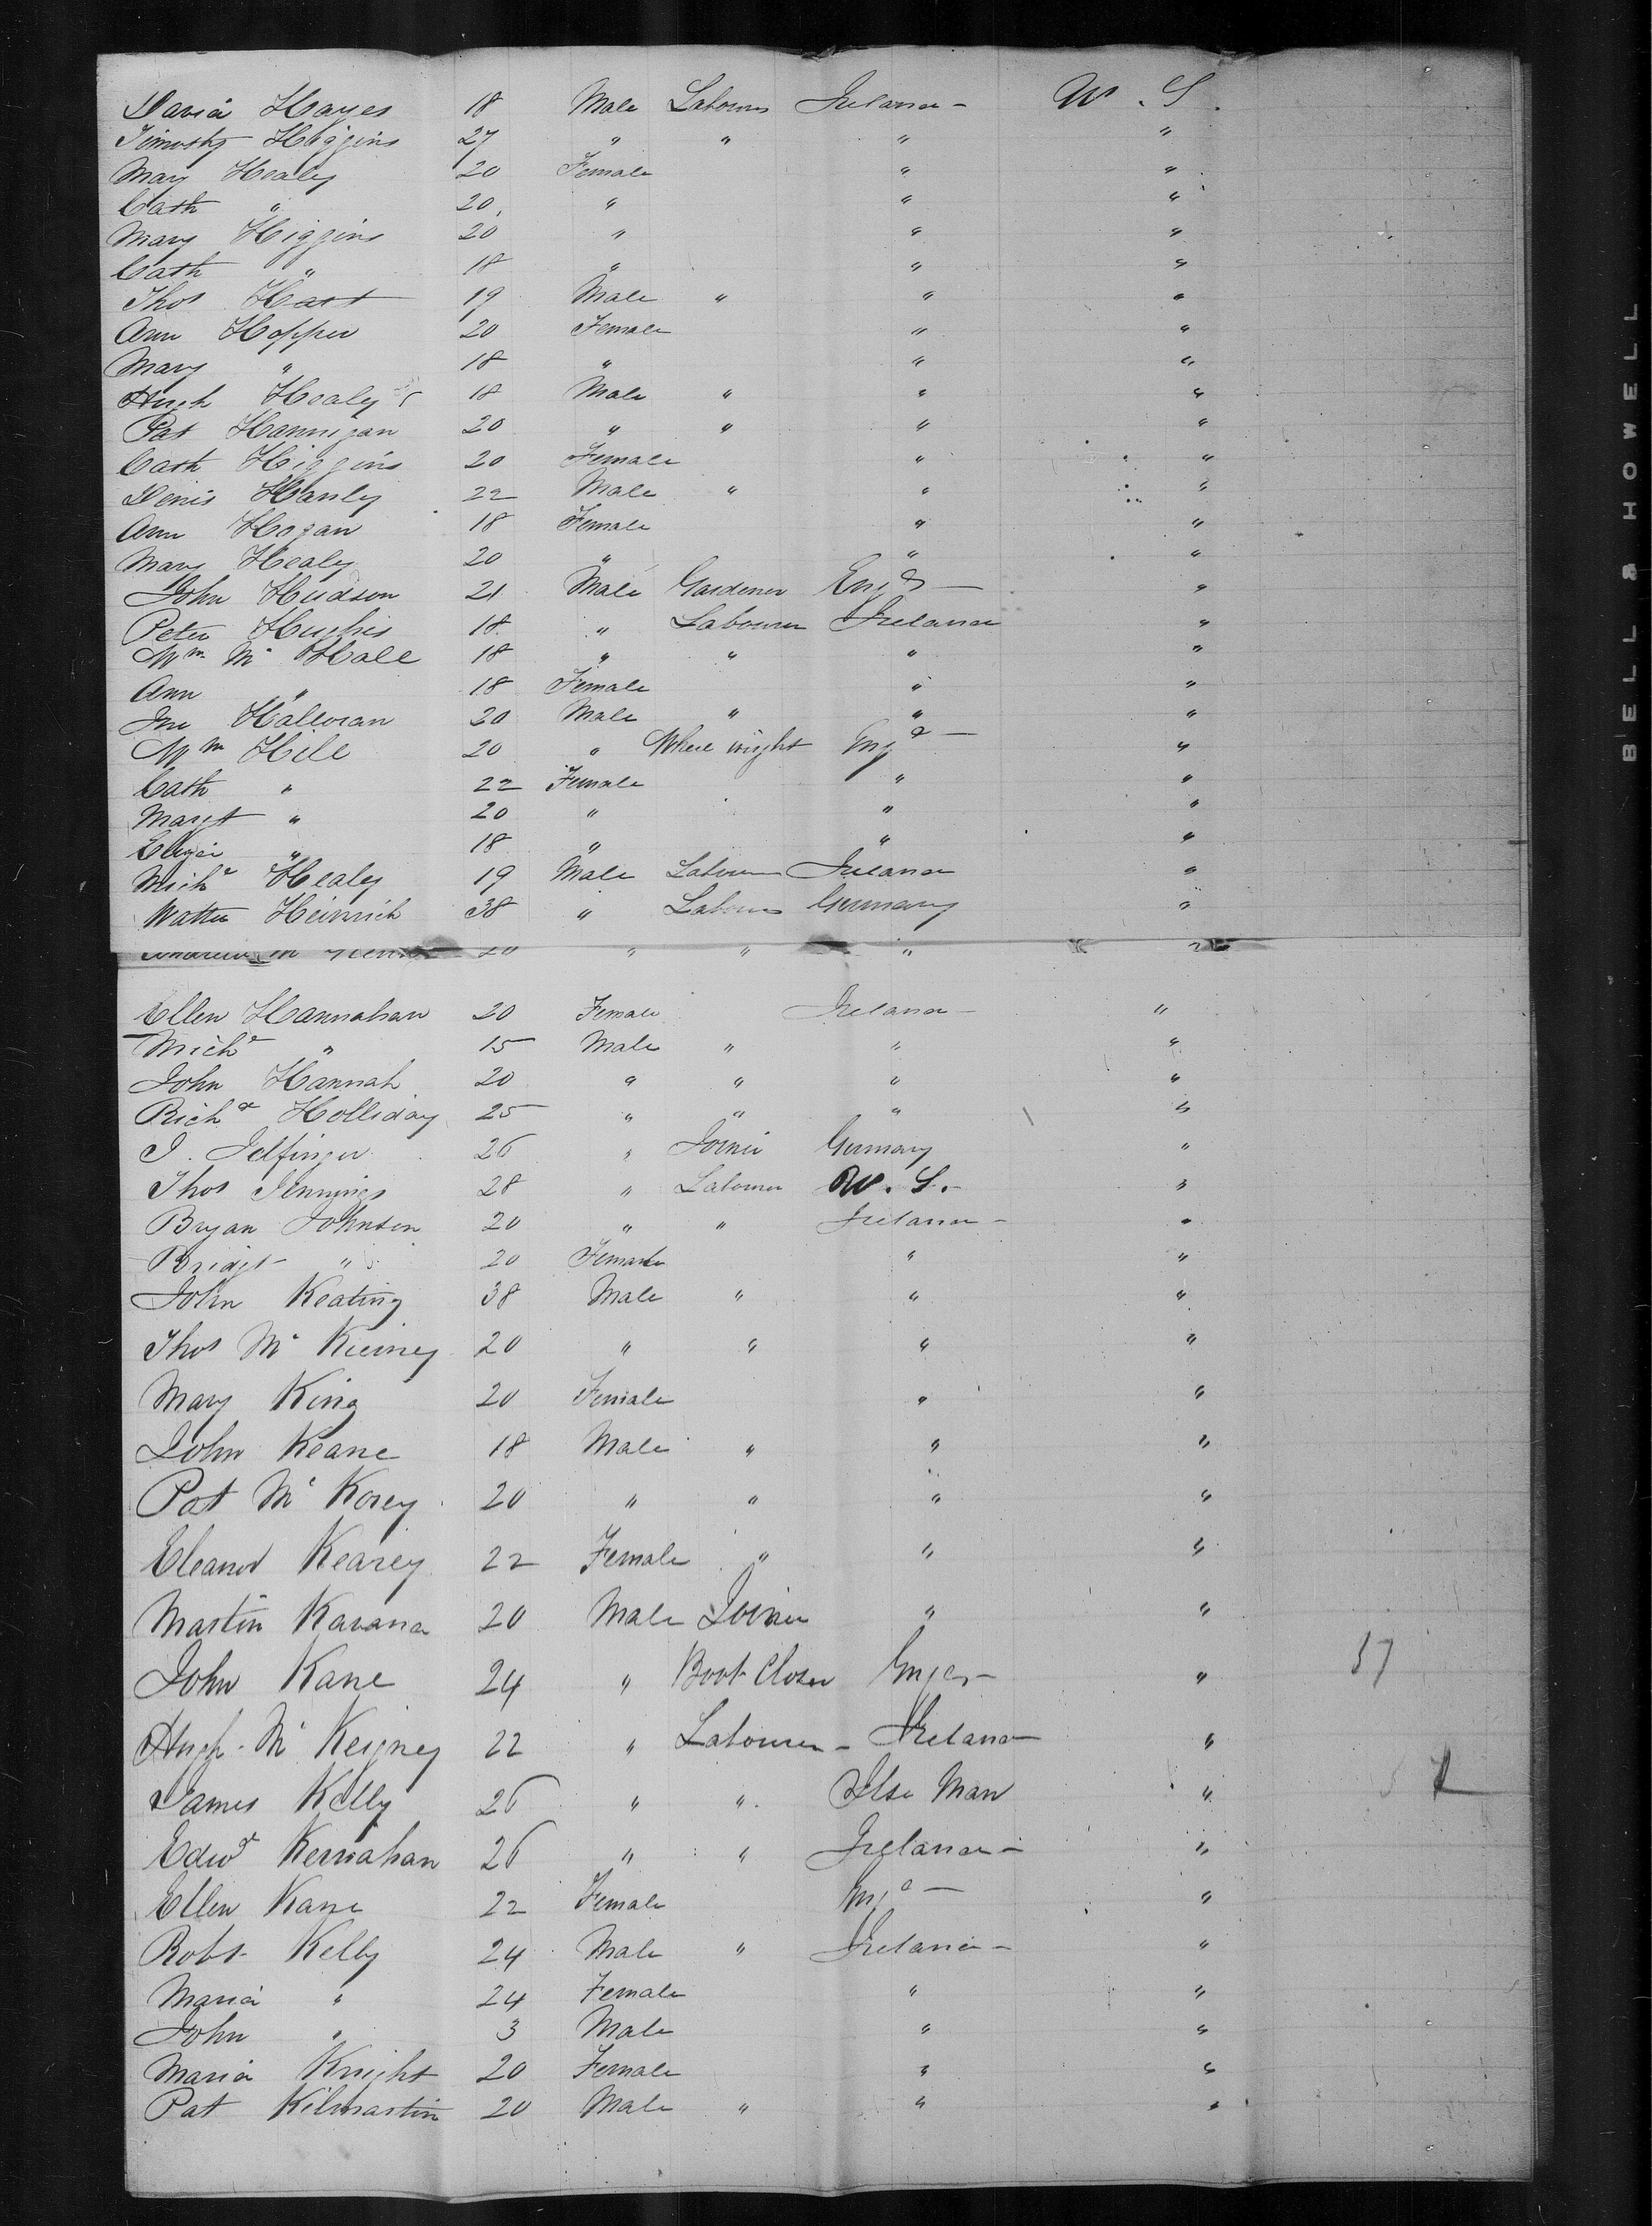 David Hayes 18 Male Labourer Ireland - U. S.
Timothy Higgins 27 " " " "
Mary Healey 20 Female " "
Cath " 20 " " "
Mary Higgins 20 " " "
Cath " 18 " " "
Thos Hart 19 Male " " "
Ann Hopper 20 Female " "
Mary " 18 " " "
Hugh Healey 18 Male " " "
Pat Hannigan 20 " " " "
Cath Higgins 20 Female " "
Denis Hanly 22 Male " " "
Ann Hogan 18 Female " "
Mary Healey 20 " " "
John Hudson 21 Male Gardener Engd — "
Peter Hughes 18 " Labourer Ireland "
Wm Mc Hale 18 " " " "
Ann " 18 Female " "
Jno Halloran 20 Male " " "
Wm Hill 20 " Wheelwright Engd — "
Cath " 22 Female " "
Margt " 20 " " "
Eliza " 18 " " "
Michl Healey 19 Male Labourer Ireland "
Heinrich 38 " Labourer Germany "
20 " " "
Ellen Hannahan 20 Female Ireland - "
Michl " 15 Male " " "
John Hannah 20 " " " "
Richd Holliday 25 " " " "
26 " Joiner Germany "
Thos Jennings 28 " Labourer U. S. - "
Bryan Johnson 20 " " Ireland - "
Bridgt " 20 Female " "
John Keating 38 Male " " "
Thos Mc 20 " " " "
Mary King 20 Female " "
John Keane 18 Male " " "
Pat Mc 20 " " " "
Eleanor Kearey 22 Female " " "
Martin Kavana 20 Male Joiner " "
John Kane 24 " Boot Closer Engd - " 37
Hugh Mc 22 " Labourer - Ireland "
James Kelly 26 " " Isle Man "
Edwd Kernahan 26 " " Ireland - "
Ellen Kane 22 Female Engd — "
Robt Kelly 24 Male " Ireland - "
Maria " 24 Female " "
John " 3 Male " "
Maria Knight 20 Female " "
Pat Kilmartin 20 Male " " "
BELL & HOWELL